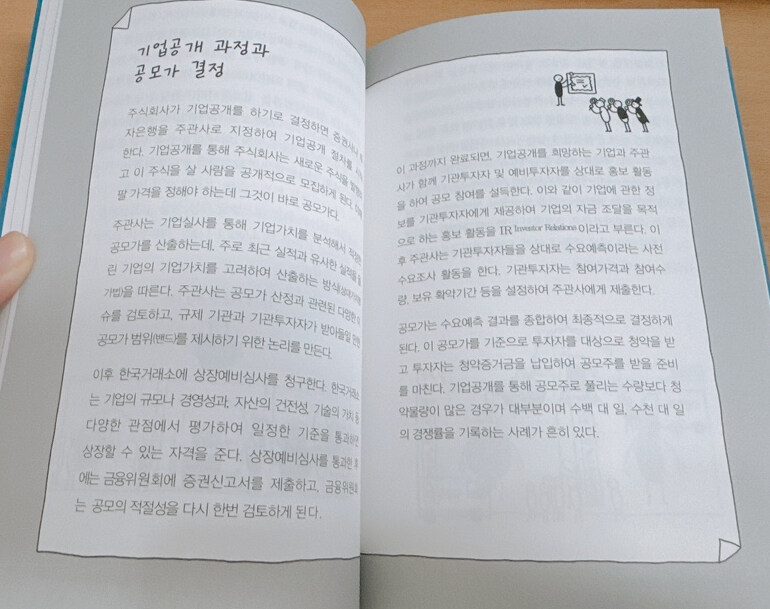 기업공개 과정과
공모가 결정
주식회사가 기업공개를 하기로 결정하면 증권사나
자은행을 주관사로 지정하여 기업공개 절차를
한다. 기업공개를 통해 주식회사는 새로운 주식을
고 이 주식을 살 사람을 공개적으로 모집하게 된다.
말 가격을 정해야 하는데 그것이 바로 공모가다.
주관사는 기업실사를 통해 기업가치를 분석해서
공모가를 산출하는데, 주로 최근 실적과 유사한 실적을
린 기업의 기업가치를 고려하여 산출하는 방식
을 따른다. 주관사는 공모가 산정과 관련된 다양한
슈를 검토하고, 규제 기관과 기관투자자가 받아들일 만한
공모가 범위(밴드)를 제시하기 위한 논리를 만든다.
이후 한국거래소에 상장예비심사를 청구한다. 한국거래소
는 기업의 규모나 경영성과, 자산의 건전성, 기술의 가치 등
다양한 관점에서 평가하여 일정한 기준을 통과하면
상장할 수 있는 자격을 준다. 상장예비심사를 통과한 후
에는 금융위원회에 증권신고서를 제출하고, 금융위원회
는 공모의 적절성을 다시 한번 검토하게 된다.
이 과정까지 완료되면, 기업공개를 희망하는 기업과 주관
사가 함께 기관투자자 및 예비투자자를 상대로 홍보 활동
을 하여 공모 참여를 설득한다. 이와 같이 기업에 관한 정
보를 기관투자자에게 제공하여 기업의 자금 조달을 목적
으로 하는 홍보 활동을 IR Investor Relations이라고 부른다. 이
후 주관사는 기관투자자들을 상대로 수요예측이라는 사전
수요조사 활동을 한다. 기관투자자는 참여가격과 참여수
량, 보유 확약기간 등을 설정하여 주관사에게 제출한다.
공모가는 수요예측 결과를 종합하여 최종적으로 결정하게
된다. 이 공모가를 기준으로 투자자를 대상으로 청약을 받
고 투자자는 청약증거금을 납입하여 공모주를 받을 준비
를 마친다. 기업공개를 통해 공모주로 풀리는 수량보다 청
약물량이 많은 경우가 대부분이며 수백 대 일, 수천 대 일
의 경쟁률을 기록하는 사례가 흔히 있다.